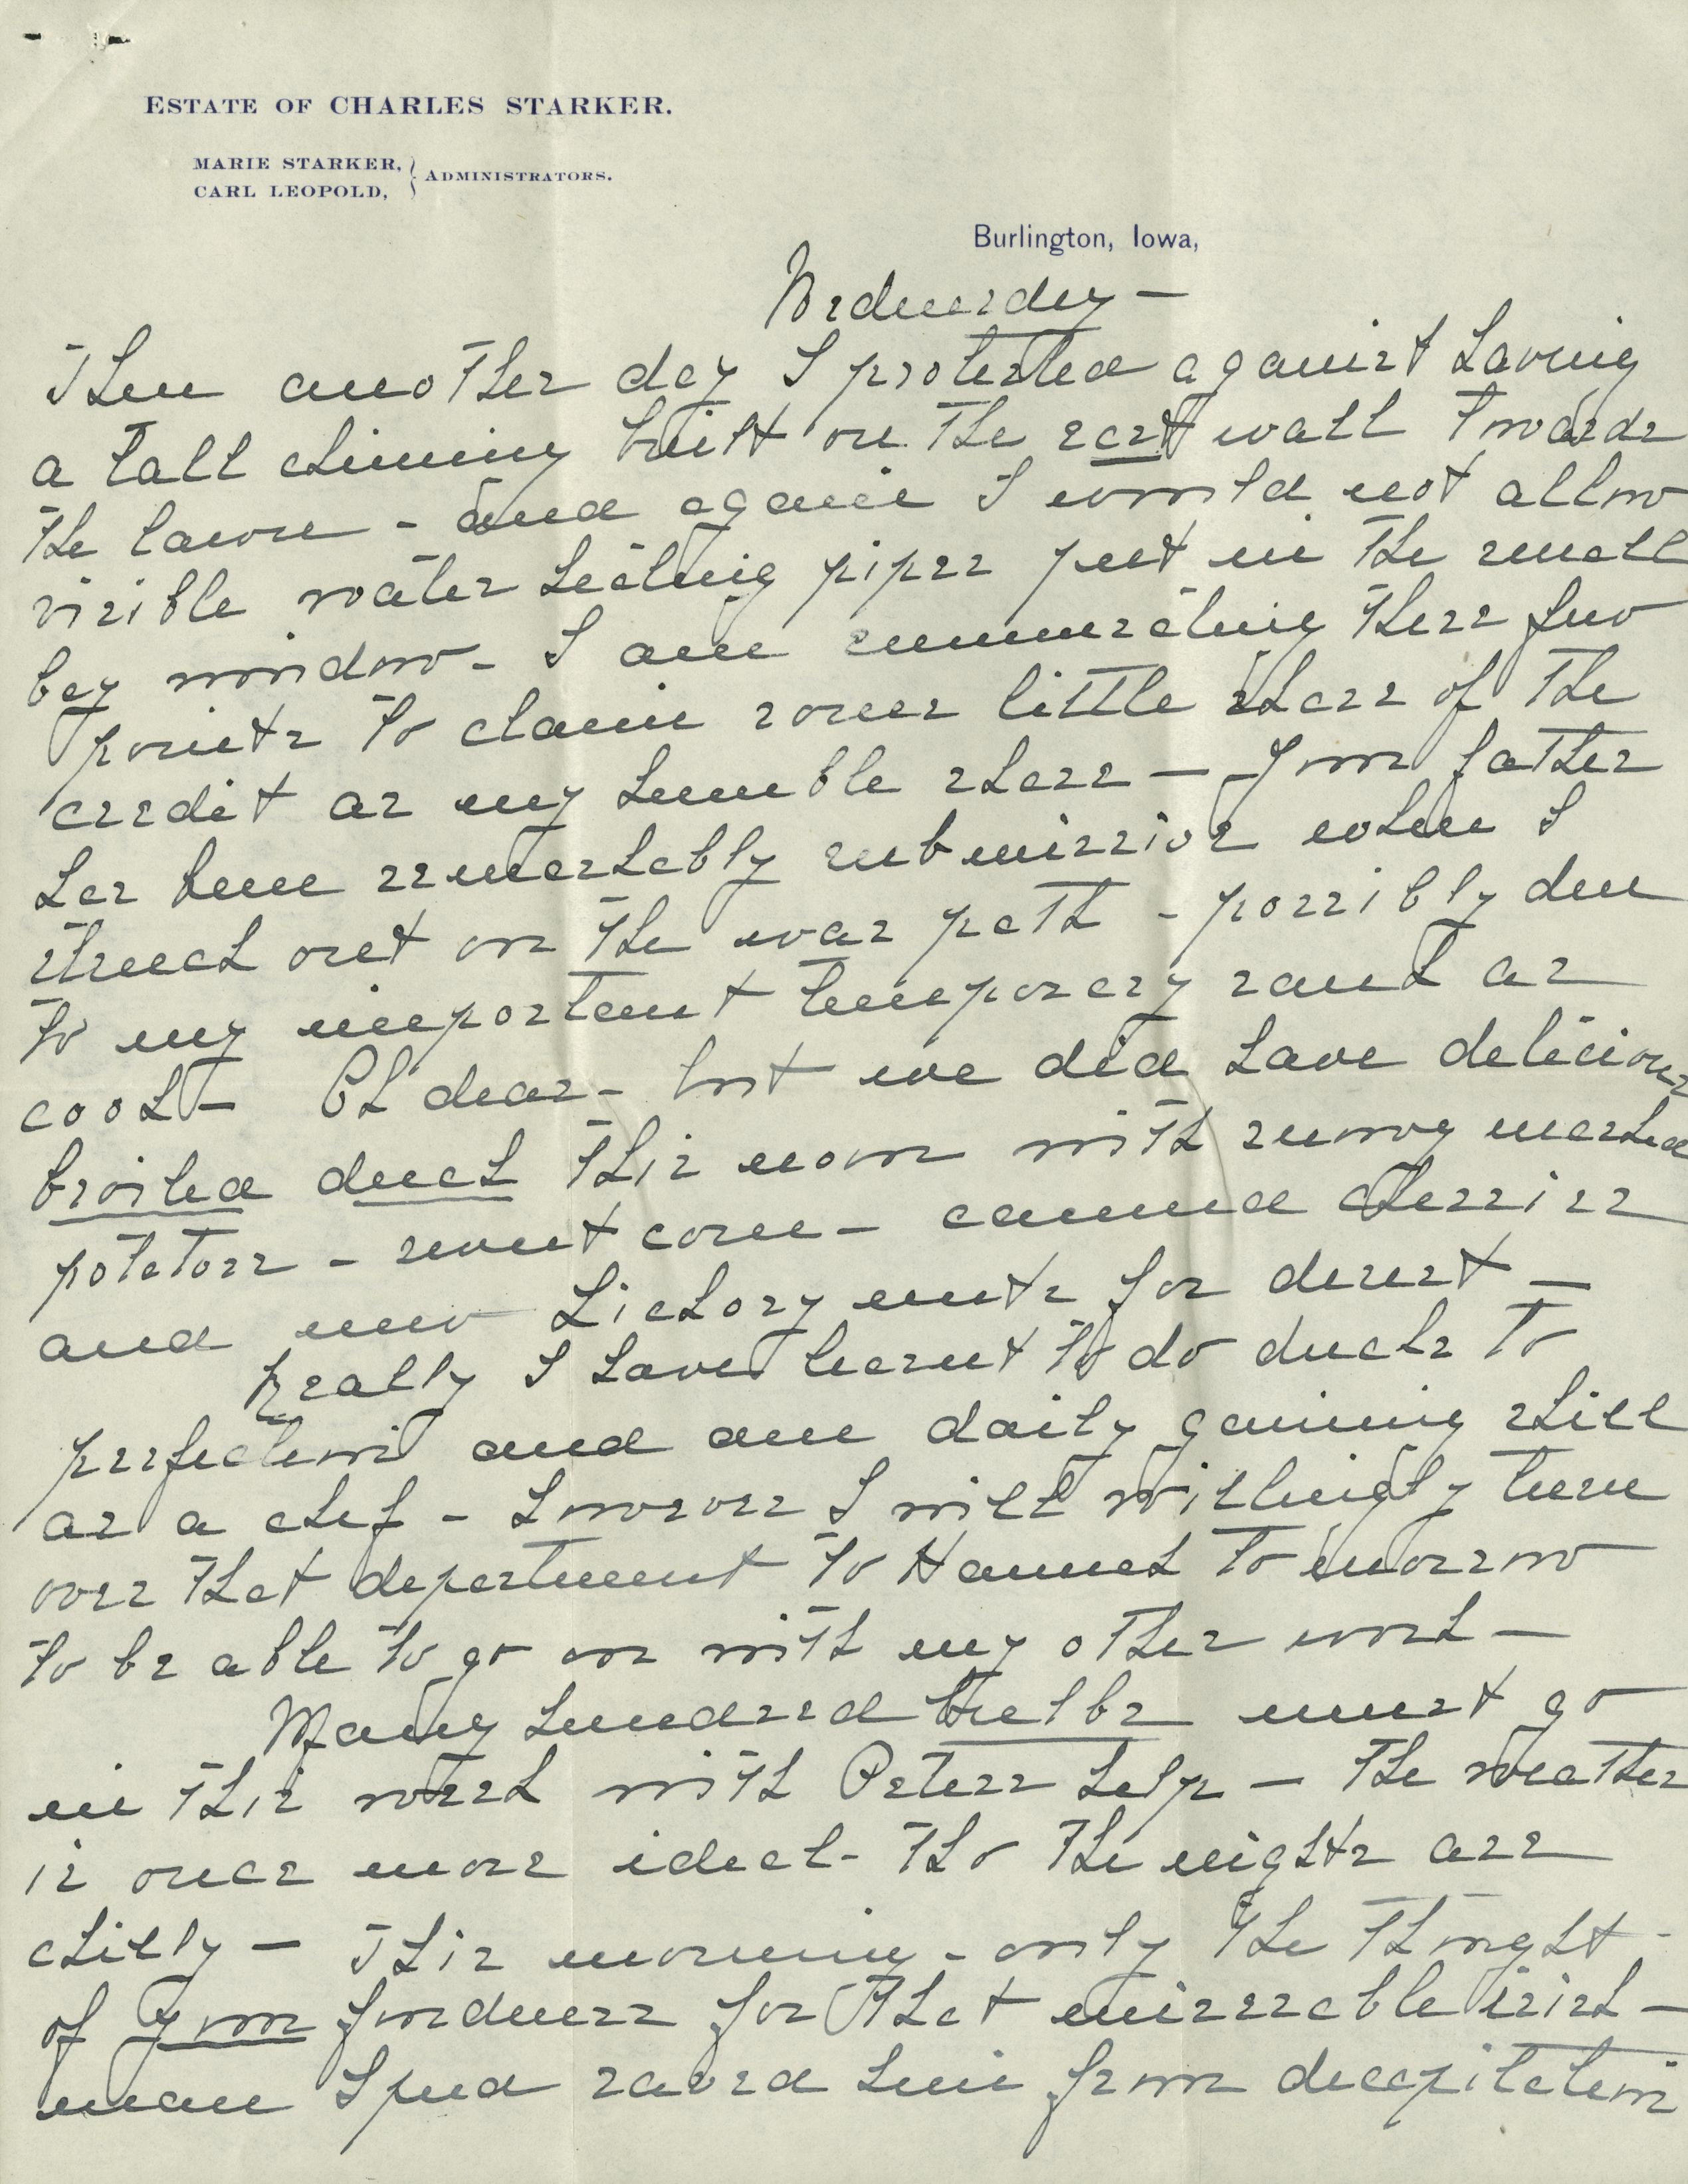 ESTATE OF CHARLES STARKER.
MARIE STARKER,
CARL LEOPOLD, } ADMINISTRATORS.
Burlington, Iowa,
Wednesday —
Then another day I protested against having
a tall chimny built on the east wall towards
the lawn - and again I would not allow
visible water heating pipes put in the small
bay window - I am enumerating these few
points to claim some little share of the
credit as my humble share — Your father
has been remarkably submissive when I
struck out on the war path - possibly due
to my important temporary rank as
cook - Oh dear - but we did have delicious
broiled duck this noon with snowy mashed
potatoes - sweet corn - canned cherries
and new hickory nuts for desert —
Really I have learnt to do ducks to
perfection and am daily gaining skill
as a chef - however I will willingly turn
over that department to Hannah tomorrow
to be able to go on with my other work —
Many hundred bulbs must go
in this week with Peters help — the weather
is once more ideal - tho the nights are
chilly — This morning - only the thought -
of your fondness for that miserable irish —
man Spud saved him from decapitation